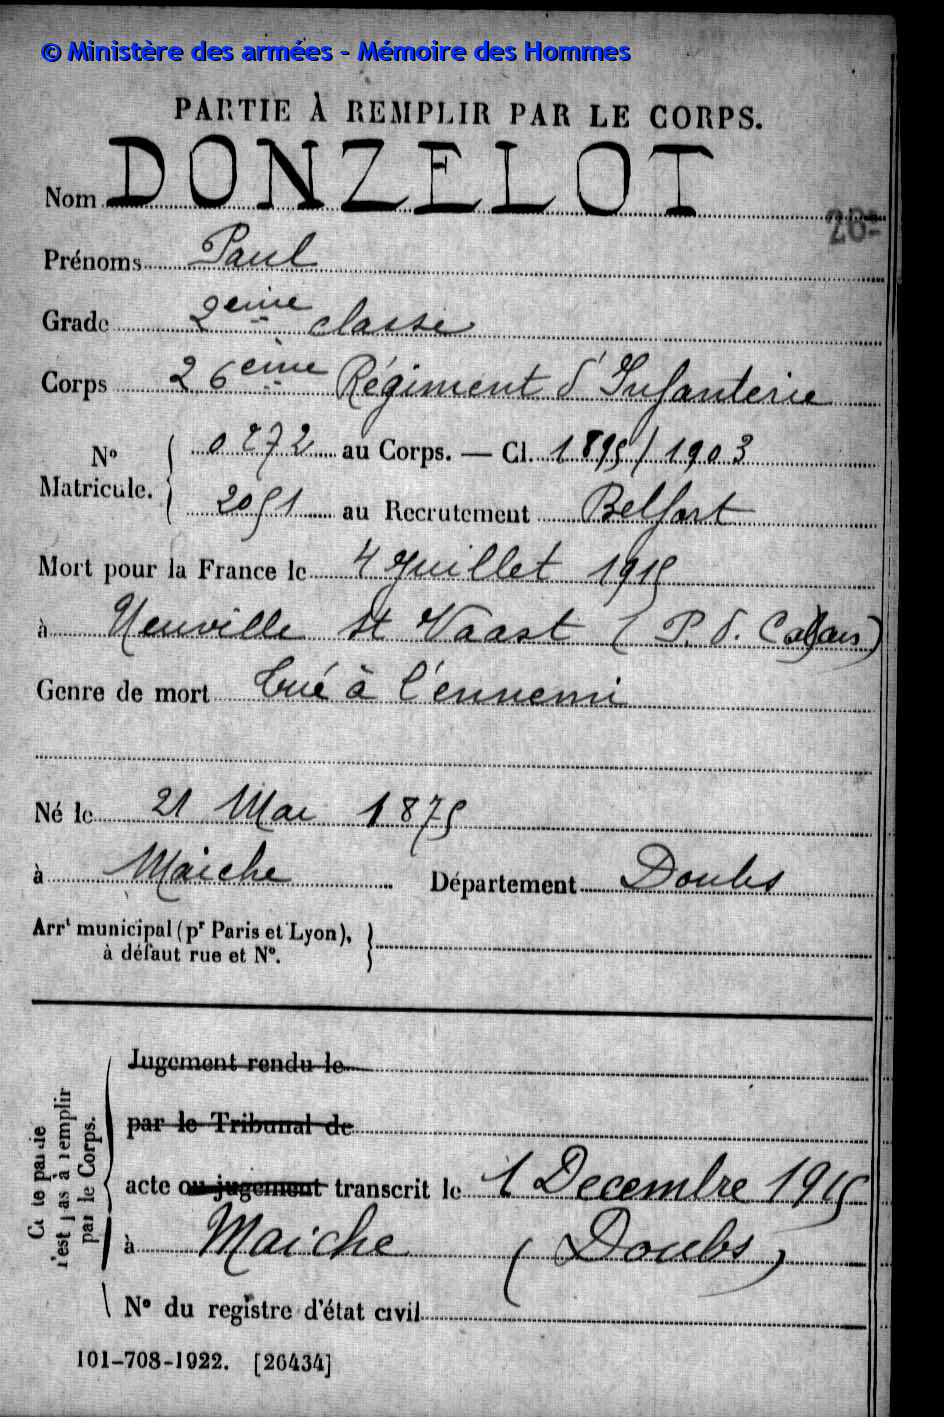 © Ministère des armées - Mémoire des Hommes
PARTIE À REMPLIR PAR LE CORPS.
Nom DONZELOT
26e
Prénoms Paul
Grade 2ème classe
Corps 26ème Régiment d'Infanterie
No Matricule. 0272 au Corps. — Cl. 1895/1903
2051 au Recrutement Belfort
Mort pour la France le 4 Juillet 1915
à Neuville St Vaast (P. d. Calais)
Genre de mort tué à l'ennemi
Né le 21 Mai 1875
à Maiche Département Doubs
Arrt municipal (pr Paris et Lyon),
à défaut rue et No.
Cette partie n'est pas à remplir par le Corps.
Jugement rendu le
par le Tribunal de
acte ou jugement transcrit le 1 Decembre 1915
à Maiche (Doubs)
No du registre d'état civil
101-708-1922. [26434]